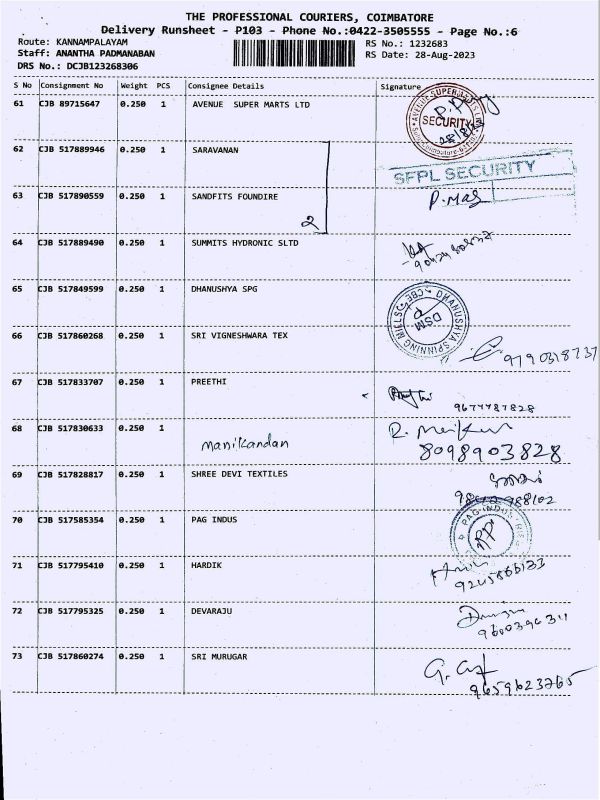 THE PROFESSIONAL COURIERS, COIMBATORE
Delivery Runsheet - P103 - Phone No.:0422-3505555 - Page No.:6
Route: KANNAMPALAYAM RS No.: 1232683
Staff: ANANTHA PADMANABAN RS Date: 28-Aug-2023
DRS No.: DCJB123268306
S No Consignment No Weight PCS Consignee Details Signature
61 CJB 89715647 0.250 1 AVENUE SUPER MARTS LTD
SECURITY
62 CJB 517889946 0.250 1 SARAVANAN
SFPL SECURITY
63 CJB 517890559 0.250 1 SANDFITS FOUNDIRE
2
64 CJB 517889490 0.250 1 SUMMITS HYDRONIC SLTD
65 CJB 517849599 0.250 1 DHANUSHYA SPG
DHANUSHYA SPINNING MILLS CBE
DSM
66 CJB 517860268 0.250 1 SRI VIGNESHWARA TEX
67 CJB 517833707 0.250 1 PREETHI
9677787828
68 CJB 517830633 0.250 1 Manikandan
8098903828
69 CJB 517828817 0.250 1 SHREE DEVI TEXTILES
70 CJB 517585354 0.250 1 PAG INDUS
71 CJB 517795410 0.250 1 HARDIK
72 CJB 517795325 0.250 1 DEVARAJU
73 CJB 517860274 0.250 1 SRI MURUGAR
9659623765